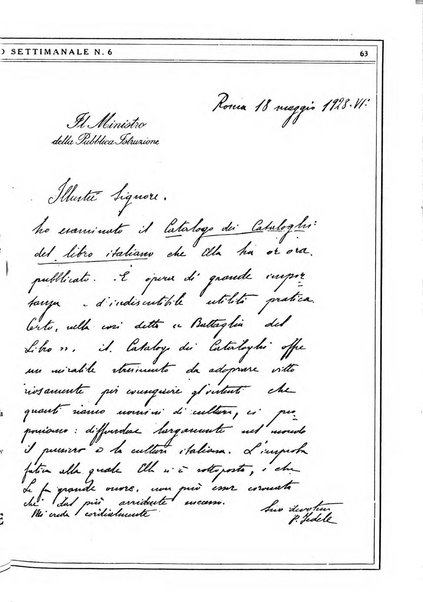 O SETTIMANALE N. 6
63
Roma 18 maggio 1928-VI:
Il Ministro
della Pubblica Istruzione
Illustre Signore.
ho esaminato il Catalogo dei Cataloghi
del libro italiano che Ella ha or ora
pubblicato. E' opera di grande impor
tanza e d'indiscutibile utilità pratica
Certo, nella così detta « Battaglia del
Libro », il Catalogo dei Cataloghi offre
un mirabile strumento da adoprare vitto
riosamente per conseguire gl'intenti che
quanti siamo uomini di cultura, ci pro
poniamo: diffondere largamente nel mondo
il pensiero e la cultura italiana. L'improba
fatica alla quale Ella si è sottoposto, e che
Le fa grande onore, non può esser coronata
che dal più arridente successo.
Mi creda cordialmente
Suo devotissimo
P. Fedele